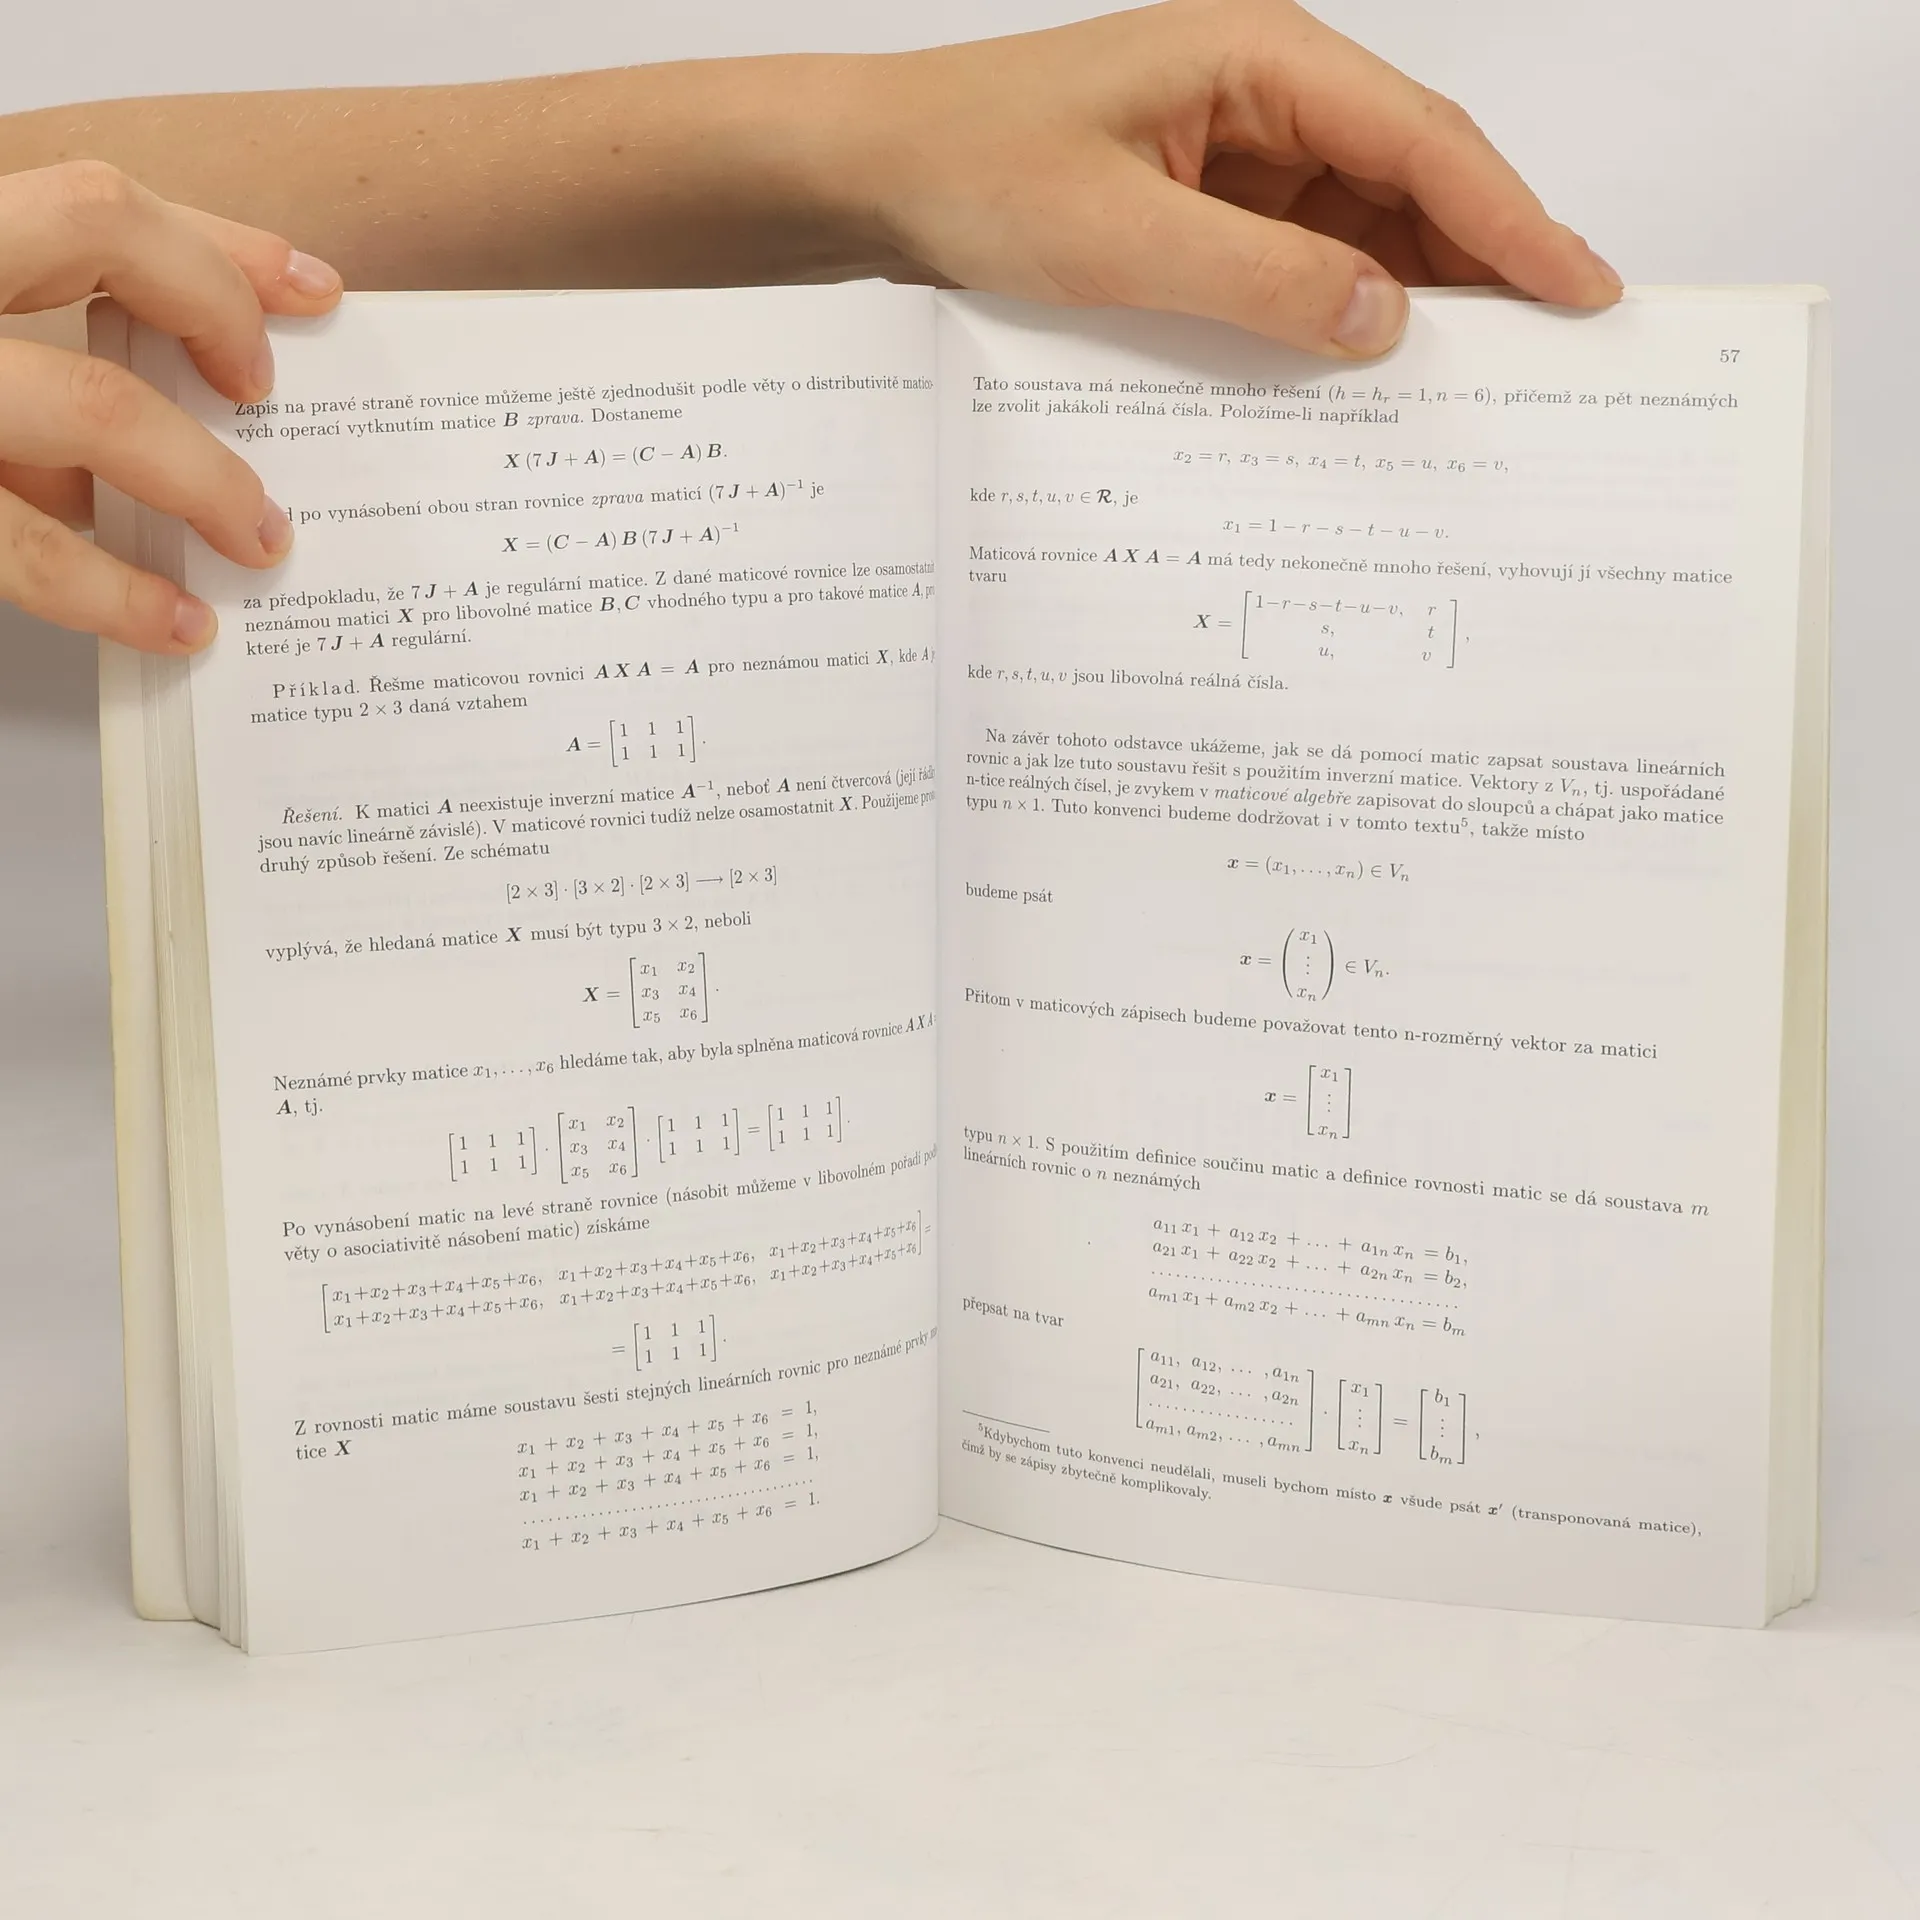 Zapis na pravé straně rovnice můžeme ještě zjednodušit podle věty o distributivitě matico-
vých operací vytknutím matice B zprava. Dostaneme
X (7 J + A) = (C − A) B.
po vynásobení obou stran rovnice zprava maticí (7 J + A)⁻¹ je
X = (C − A) B (7 J + A)⁻¹
za předpokladu, že 7 J + A je regulární matice. Z dané maticové rovnice lze osamostatnit
neznámou matici X pro libovolné matice B, C vhodného typu a pro takové matice A,
které je 7 J + A regulární.
Příklad. Řešme maticovou rovnici A X A = A pro neznámou matici X, kde A
matice typu 2 × 3 daná vztahem
A = [1 1 1
1 1 1].
Řešení. K matici A neexistuje inverzní matice A⁻¹, neboť A není čtvercová (její
jsou navíc lineárně závislé). V maticové rovnici tudíž nelze osamostatnit X. Použijeme
druhý způsob řešení. Ze schématu
[2 × 3] · [3 × 2] · [2 × 3] ⟶ [2 × 3]
vyplývá, že hledaná matice X musí být typu 3 × 2, neboli
X = [x₁ x₂
x₃ x₄
x₅ x₆].
Neznámé prvky matice x₁, . . . , x₆ hledáme tak, aby byla splněna maticová rovnice A X A =
A, tj.
[1 1 1 · [x₁ x₂ · [1 1 1 = [1 1 1
1 1 1] x₃ x₄ 1 1 1] 1 1 1].
x₅ x₆]
Po vynásobení matic na levé straně rovnice (násobit můžeme v libovolném pořadí
věty o asociativitě násobení matic) získáme
[x₁+x₂+x₃+x₄+x₅+x₆, x₁+x₂+x₃+x₄+x₅+x₆, x₁+x₂+x₃+x₄+x₅+x₆
x₁+x₂+x₃+x₄+x₅+x₆, x₁+x₂+x₃+x₄+x₅+x₆, x₁+x₂+x₃+x₄+x₅+x₆] =
= [1 1 1
1 1 1].
Z rovnosti matic máme soustavu šesti stejných lineárních rovnic pro neznámé prvky
tice X
x₁ + x₂ + x₃ + x₄ + x₅ + x₆ = 1,
x₁ + x₂ + x₃ + x₄ + x₅ + x₆ = 1,
x₁ + x₂ + x₃ + x₄ + x₅ + x₆ = 1,
........................................
x₁ + x₂ + x₃ + x₄ + x₅ + x₆ = 1.
57
Tato soustava má nekonečně mnoho řešení (h = hᵣ = 1, n = 6), přičemž za pět neznámých
lze zvolit jakákoli reálná čísla. Položíme-li například
x₂ = r, x₃ = s, x₄ = t, x₅ = u, x₆ = v,
kde r, s, t, u, v ∈ R, je
x₁ = 1 − r − s − t − u − v.
Maticová rovnice A X A = A má tedy nekonečně mnoho řešení, vyhovují jí všechny matice
tvaru
X = [1−r−s−t−u−v, r
s, t
u, v],
kde r, s, t, u, v jsou libovolná reálná čísla.
Na závěr tohoto odstavce ukážeme, jak se dá pomocí matic zapsat soustava lineárních
rovnic a jak lze tuto soustavu řešit s použitím inverzní matice. Vektory z Vₙ, tj. uspořádané
n-tice reálných čísel, je zvykem v maticové algebře zapisovat do sloupců a chápat jako matice
typu n × 1. Tuto konvenci budeme dodržovat i v tomto textu⁵, takže místo
x = (x₁, . . . , xₙ) ∈ Vₙ
budeme psát
x = (x₁
⋮
xₙ) ∈ Vₙ.
Přitom v maticových zápisech budeme považovat tento n-rozměrný vektor za matici
x = [x₁
⋮
xₙ]
typu n × 1. S použitím definice součinu matic a definice rovnosti matic se dá soustava m
lineárních rovnic o n neznámých
a₁₁ x₁ + a₁₂ x₂ + . . . + a₁ₙ xₙ = b₁,
a₂₁ x₁ + a₂₂ x₂ + . . . + a₂ₙ xₙ = b₂,
........................................
aₘ₁ x₁ + aₘ₂ x₂ + . . . + aₘₙ xₙ = bₘ
přepsat na tvar
[a₁₁, a₁₂, . . . , a₁ₙ [x₁ [b₁
a₂₁, a₂₂, . . . , a₂ₙ · ⋮ = ⋮
.................. xₙ] bₘ],
aₘ₁, aₘ₂, . . . , aₘₙ]
⁵Kdybychom tuto konvenci neudělali, museli bychom místo x všude psát x′ (transponovaná matice),
čímž by se zápisy zbytečně komplikovaly.